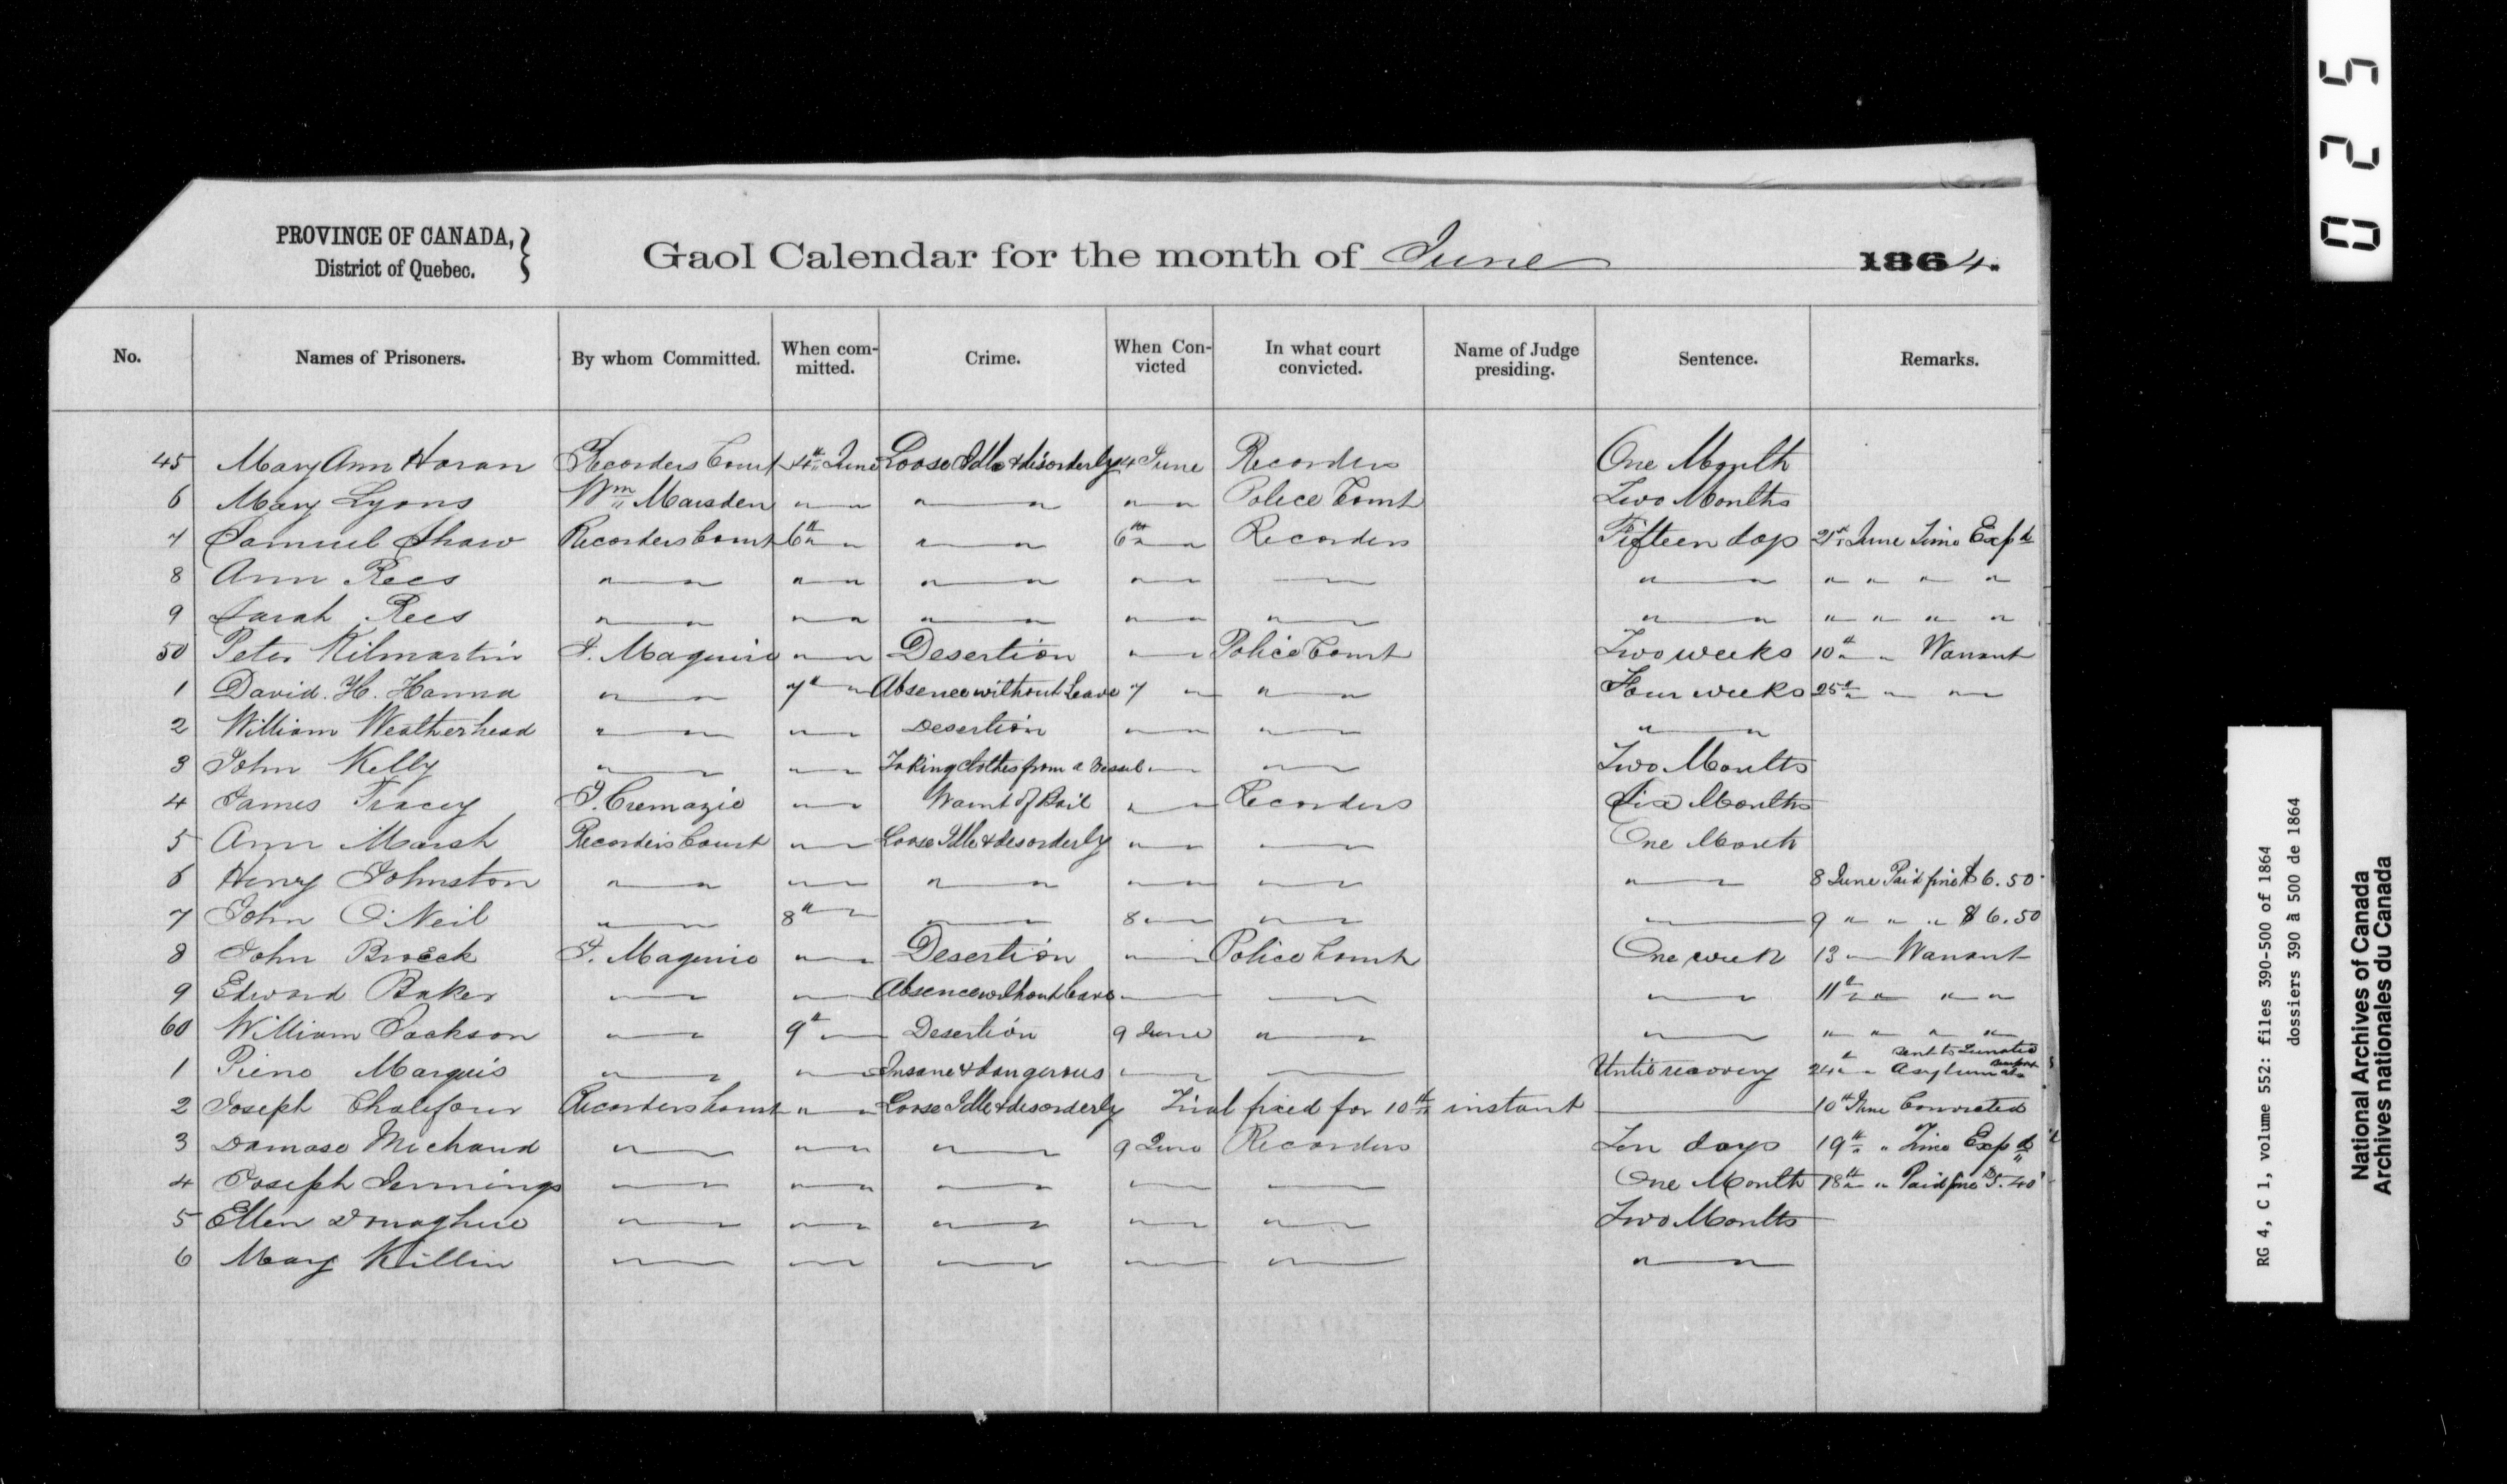 PROVINCE OF CANADA,
District of Quebec.
Gaol Calendar for the month of June 1864.
No. Names of Prisoners. By whom Committed. When committed. Crime. When Convicted In what court convicted. Name of Judge presiding. Sentence. Remarks.
45 Mary Ann Horan Recorders Court 4th June Loose Idle & disorderly 4 June Recorders One Month
6 Mary Lyons Wm Marsden " " " " " " Police Court Two Months
7 Samuel Shaw Recorders Court 6th " " " 6th " Recorders Fifteen days 21st June Time Expd
8 Ann Rees " " " " " " " " " " " " " "
9 Sarah Rees " " " " " " " " " " " " " " " "
50 Peter Kilmartin J. Maguire " " Desertion " " Police Court Two weeks 10th " Warrant
1 David. H. Hanna " " 7th " Absence without Leave 7 " " " Four weeks 25th " " "
2 William Weatherhead " " " " Desertion " " " " " "
3 John Kelly " " " " Taking clothes from a Vessel " " " Two Months
4 James Tracey J. Cremazie " " Want of Bail " " Recorders Six Months
5 Ann Marsh Recorders Court " " Loose Idle & desorderly " " " " One Month
6 Henry Johnston " " " " " " " " " " " " 8 June Paid fine $6.50
7 John O'Neil " " 8th " " " 8 " " " " 9 " " " $6.50
8 John Broeck J. Maguire " " Desertion " " Police Court One week 13 " Warrant
9 Edward Baker " " " " Absence without leave " " " " " 11th " " " "
60 William Jackson " " 9th " Desertion 9 June " " " " " " " "
1 Pierre Marquis " " " " Insane & dangerous " " " " Until recovery 24th " sent to Lunatic Asylum
2 Joseph Chalifour Recorders Court " " Loose Idle & disorderly Trial fixed for 10th instant 10th June Convicted
3 Damase Michaud " " " " " " 9 June Recorders Ten days 19th " Time Expd
4 Joseph Jennings " " " " " " " " " " One Month 18th " Paid fine $5.40
5 Ellen Donaghue " " " " " " " " " " Two Months
6 Mary Killin " " " " " " " " " " " "
025
RG 4, C 1, volume 552: files 390-500 of 1864
dossiers 390 à 500 de 1864
National Archives of Canada
Archives nationales du Canada